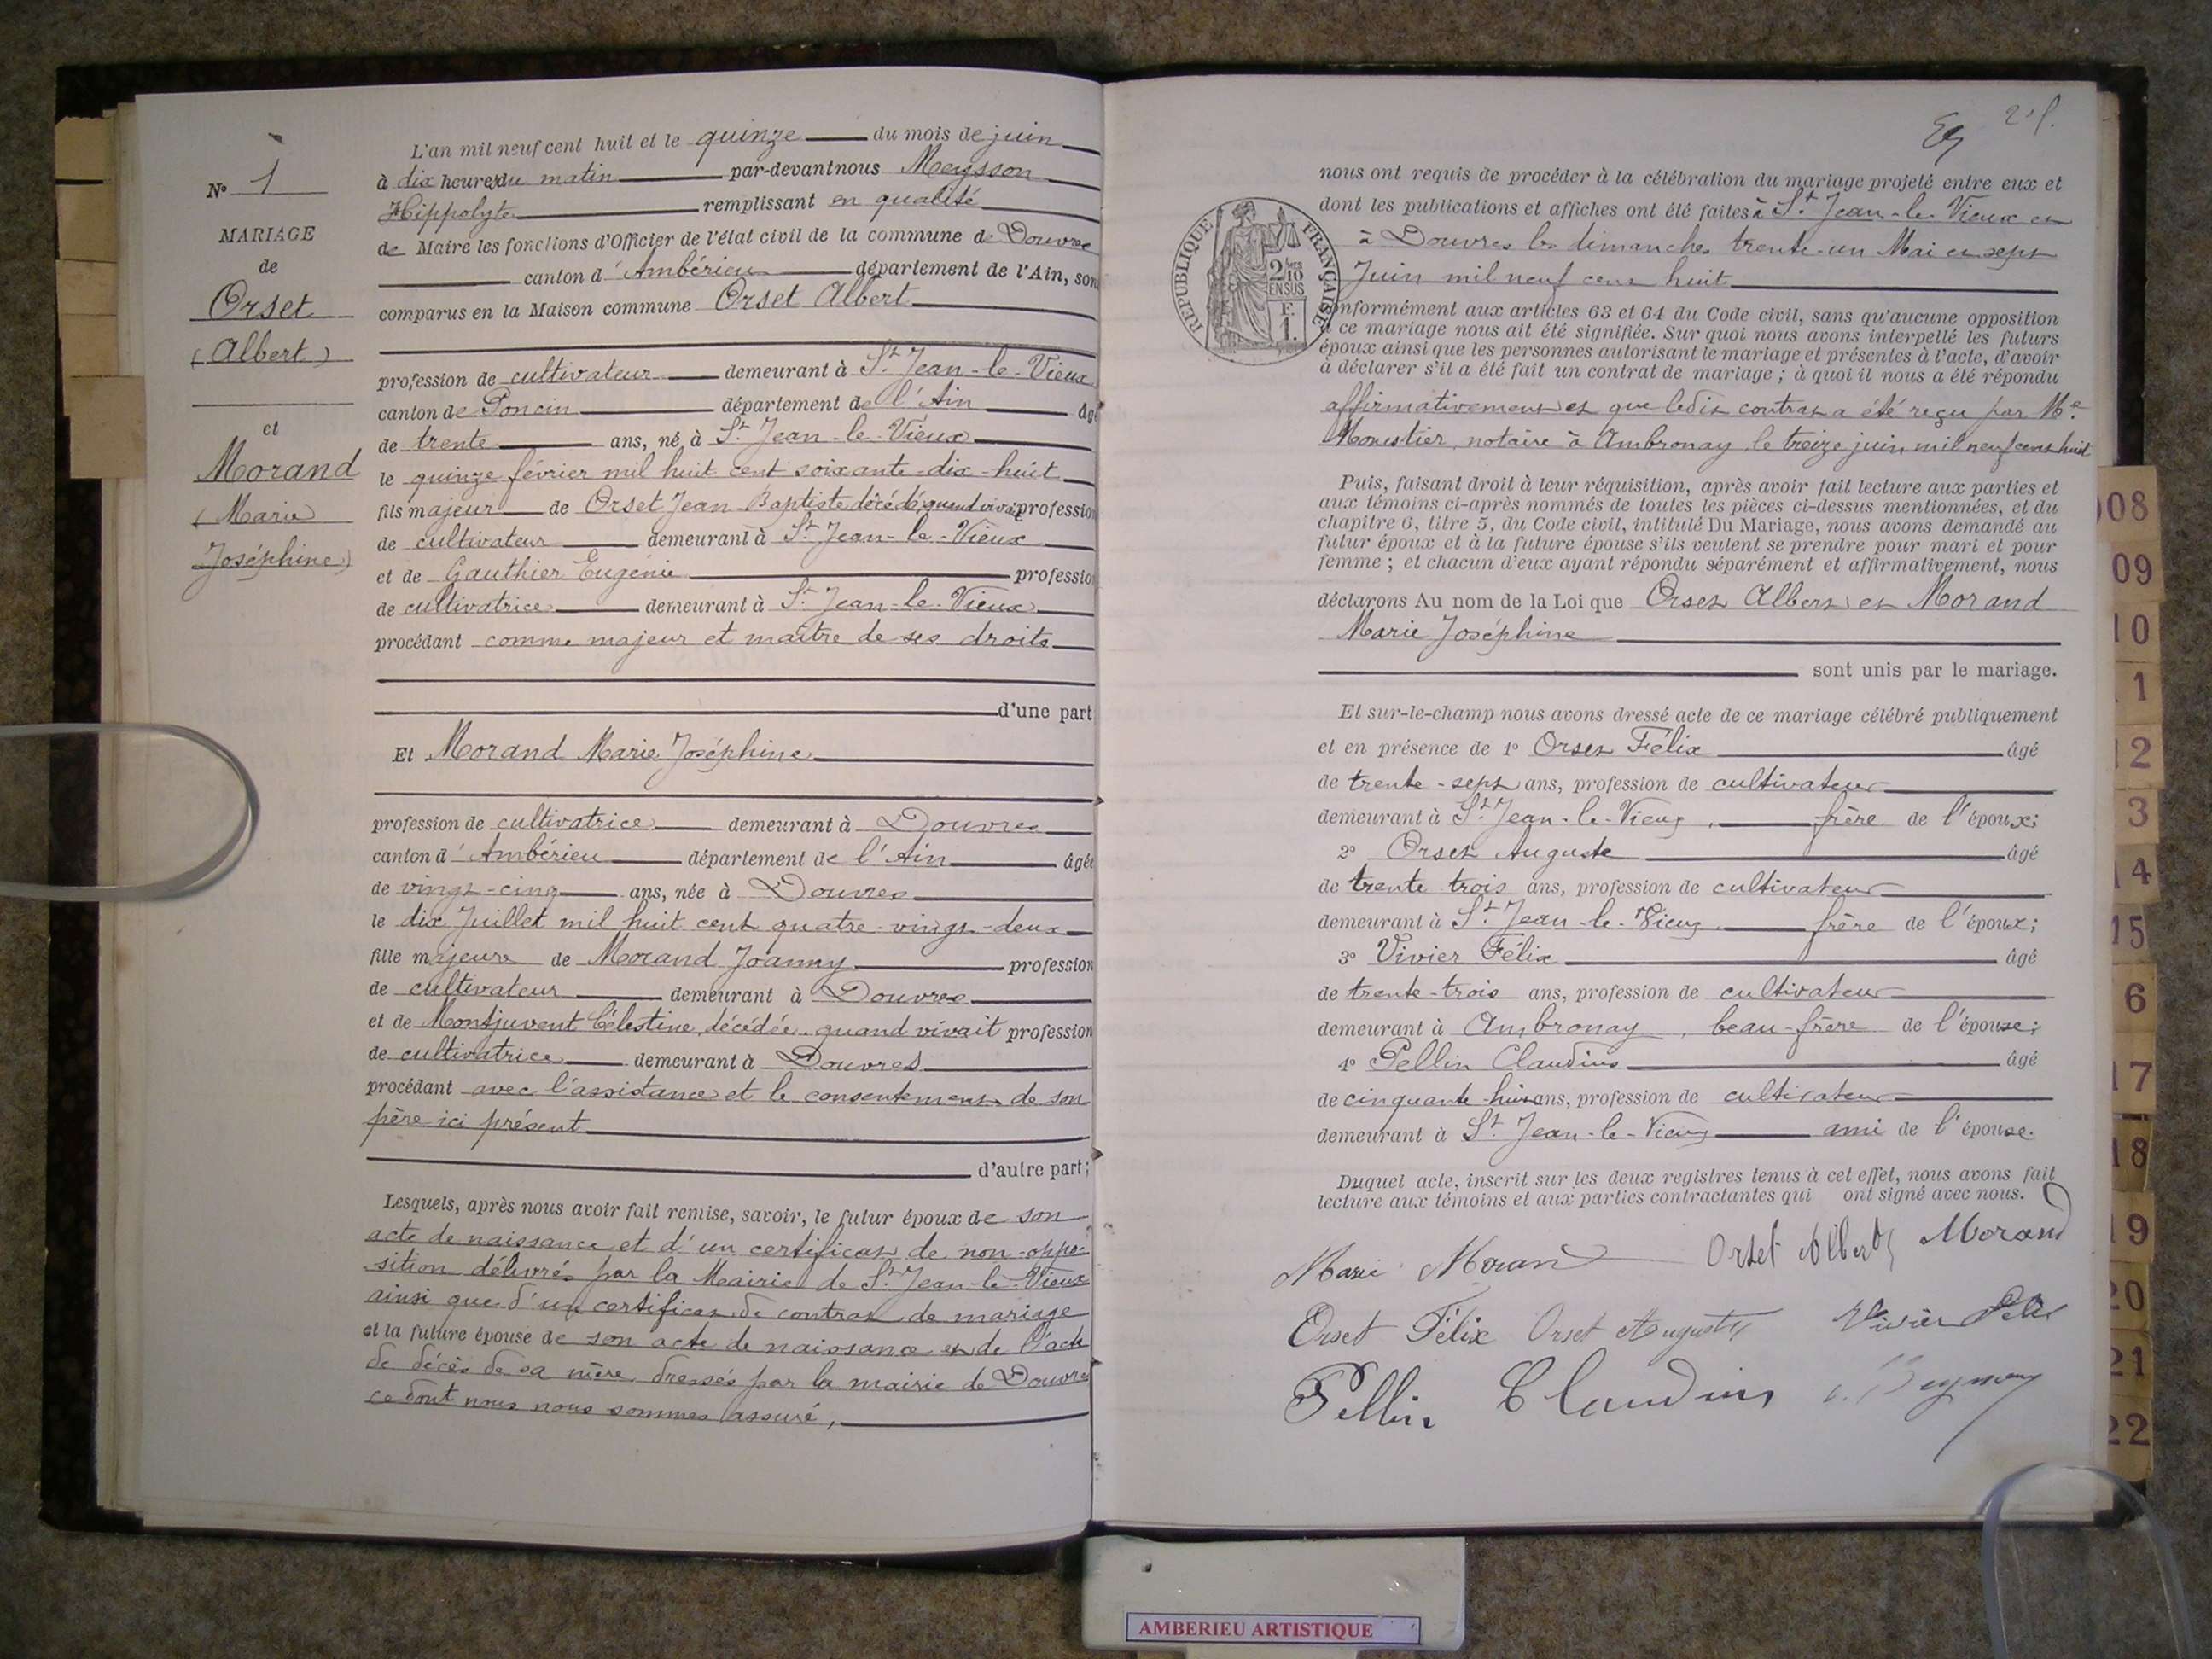 N° 1
MARIAGE
de
Orset
(Albert)
et
Morand
(Marie
Joséphine)
L'an mil neuf cent huit et le quinze du mois de juin
à dix heures du matin par-devant nous Meysson
Hippolyte remplissant en qualité
de Maire les fonctions d'Officier de l'état civil de la commune de Douvres
canton d'Ambérieu département de l'Ain, son
comparus en la Maison commune Orset Albert
profession de cultivateur demeurant à St Jean-le-Vieux
canton de Poncin département de l'Ain âgé
de trente ans, né à St Jean-le-Vieux
le quinze février mil huit cent soixante-dix-huit
fils majeur de Orset Jean Baptiste décédé, quand vivait profession
de cultivateur demeurant à St Jean-le-Vieux
et de Gauthier Eugénie profession
de cultivatrice demeurant à St Jean-le-Vieux
procédant comme majeur et maître de ses droits
d'une part
Et Morand Marie Joséphine
profession de cultivatrice demeurant à Douvres
canton d'Ambérieu département de l'Ain âgée
de vingt-cinq ans, née à Douvres
le dix Juillet mil huit cent quatre-vingt-deux
fille majeure de Morand Joanny profession
de cultivateur demeurant à Douvres
et de Montjuvent Célestine, décédée, quand vivait profession
de cultivatrice demeurant à Douvres
procédant avec l'assistance et le consentement de son
père ici présent
d'autre part;
Lesquels, après nous avoir fait remise, savoir, le futur époux de son
acte de naissance et d'un certificat de non-oppo-
sition délivrés par la Mairie de St Jean-le-Vieux
ainsi que d'un certificat de contrat de mariage
et la future épouse de son acte de naissance et de l'acte
de décès de sa mère, dressés par la mairie de Douvres
ce dont nous nous sommes assuré,
RÉPUBLIQUE FRANÇAISE
2/10
EN SUS
F.
1.
nous ont requis de procéder à la célébration du mariage projeté entre eux et
dont les publications et affiches ont été faites à St Jean-le-Vieux et
à Douvres les dimanches trente-un Mai et sept
Juin mil neuf cent huit
conformément aux articles 63 et 64 du Code civil, sans qu'aucune opposition
à ce mariage nous ait été signifiée. Sur quoi nous avons interpellé les futurs
époux ainsi que les personnes autorisant le mariage et présentes à l'acte, d'avoir
à déclarer s'il a été fait un contrat de mariage ; à quoi il nous a été répondu
affirmativement et que ledit contrat a été reçu par Me
Monestier, notaire à Ambronay le treize juin mil neuf cent huit
Puis, faisant droit à leur réquisition, après avoir fait lecture aux parties et
aux témoins ci-après nommés de toutes les pièces ci-dessus mentionnées, et du
chapitre 6, titre 5, du Code civil, intitulé Du Mariage, nous avons demandé au
futur époux et à la future épouse s'ils veulent se prendre pour mari et pour
femme ; et chacun d'eux ayant répondu séparément et affirmativement, nous
déclarons Au nom de la Loi que Orset Albert et Morand
Marie Joséphine
sont unis par le mariage.
Et sur-le-champ nous avons dressé acte de ce mariage célébré publiquement
et en présence de 1° Orset Félix âgé
de trente-sept ans, profession de cultivateur
demeurant à St Jean-le-Vieux, frère de l'époux;
2° Orset Auguste âgé
de trente trois ans, profession de cultivateur
demeurant à St Jean-le-Vieux frère de l'époux;
3° Vivier Félix âgé
de trente-trois ans, profession de cultivateur
demeurant à Ambronay, beau-frère de l'épouse;
4° Pellin Claudius âgé
de cinquante-huit ans, profession de cultivateur
demeurant à St Jean-le-Vieux ami de l'épouse.
Duquel acte, inscrit sur les deux registres tenus à cet effet, nous avons fait
lecture aux témoins et aux parties contractantes qui ont signé avec nous.
Marie Morand Orset Albert Morand
Orset Félix Orset Auguste Vivier Félix
Pellin Claudius
08
09
10
1
12
3
14
15
6
17
18
19
20
21
22
AMBERIEU ARTISTIQUE